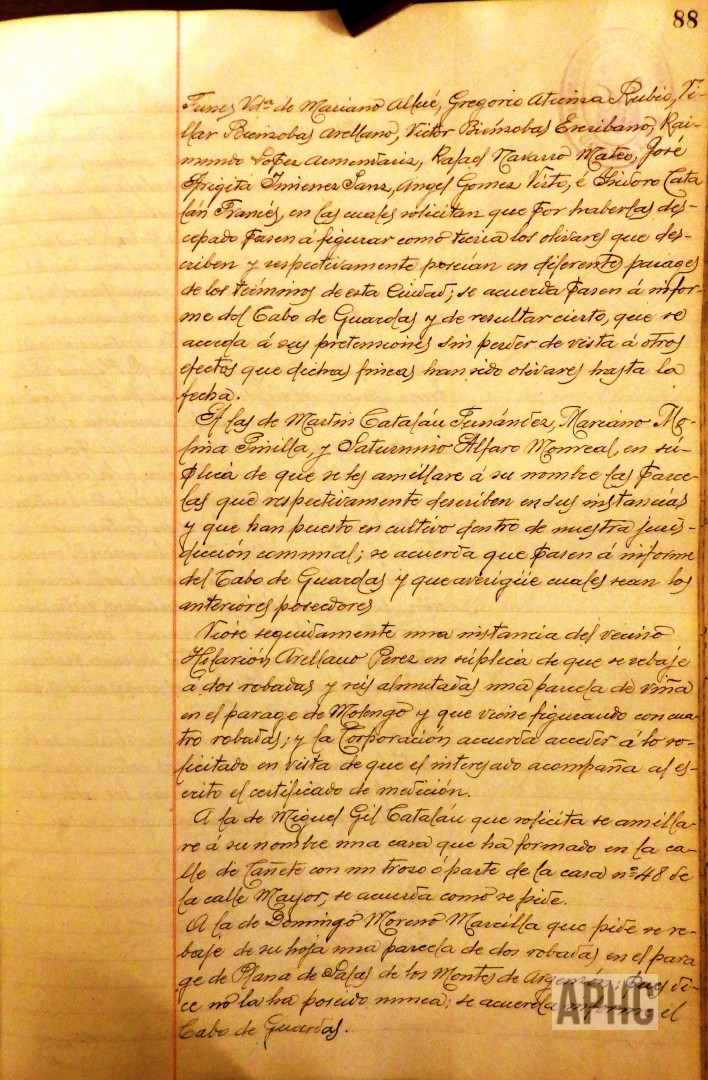 88
Funes, Vda de Mariano Allué, Gregorio Atienza Rubio, Vi-
llar Bienzobas Arellano, Victor Bienzobas Escribano, Rai-
mundo Lopez Armendariz, Rafael Navarro Mateo, José
Jimenez Sanz, Angel Gomez Virto, é Isidoro Cata
lán Francés, en las cuales solicitan que por haberlas des-
cepado pasen á figurar como tierra los olivares que des-
criben y respectivamente poseían en diferentes parages
de los términos de esta Ciudad; se acuerda pasen á infor-
me del Cabo de Guardas y de resultar cierto, que se
acceda á sus pretensiones sin perder de vista á otros
efectos que dichas fincas han sido olivares hasta la
fecha.
A las de Martin Catalán Fernández, Mariano Mo-
lina Pinilla, y Saturnino Alfaro Monreal, en sú-
plica de que se les amillare á su nombre las parce-
las que respectivamente describen en sus instancias
y que han puesto en cultivo dentro de nuestra juris-
dicción comunal; se acuerda que pasen á informe
del Cabo de Guardas y que averigüe cuales sean los
anteriores poseedores
Vióse seguidamente una instancia del vecino
Hilarión Arellano Perez en súplica de que se rebaje
á dos robadas y seis almutadas una parcela de viña
en el parage de Molengo y que viene figurando con cua
tro robadas; y la Corporación acuerda acceder á lo so-
licitado en vista de que el interesado acompaña al es-
crito el certificado de medición.
A la de Miguel Gil Catalán que solicita se amilla-
re á su nombre una casa que ha formado en la ca-
lle de Cañete con un trozo ó parte de la casa nº 48 de
la calle Mayor, se acuerda como se pide.
A la de Domingo Moreno Marcilla que pide se re-
baje de su hoja una parcela de dos robadas en el para
ge de Plana de Salas de los Montes de pues di-
ce no la ha poseido nunca; se acuerda informe el
Cabo de Guardas.
APHC